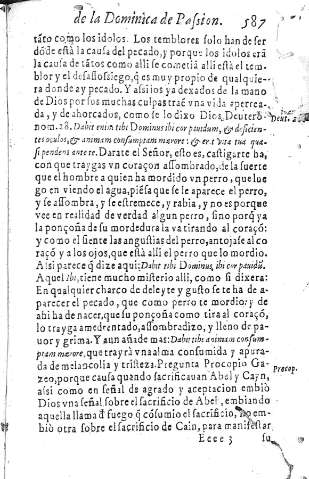 de la Dominica de Passion. 587
tāto como los idolos. Los temblores solo han de ser
dōde està la causa del pecado, y porque los idolos erā
la causa de tātos como alli se cometiā alli està el tem-
blor y el desassossiego, q̄ es muy propio de qualquie-
ra donde ay pecado. Y assi los ya dexados de la mano
de Dios por sus muchas culpas traē vna vida aperrea-
da, y de ahorcados, como se lo dixo Dios, Deuterō
nom. 28. Dabit enim tibi Dominus ibi cor pauidum, & deficien-
tes oculos, & animam consumptam mœrore: & erit vita tua qua-
si pendens ante te. Darate el Señor, esto es, castigarte ha,
con que traygas vn coraçon assombrado, de la suerte
que el hombre a quien ha mordido vn perro, que lue
go en viendo el agua, piēsa que se le aparece el perro,
y se assombra, y se estremece, y rabia, y no es porque
vee en realidad de verdad algun perro, sino porq̄ ya
la ponçoña de su mordedura la va tirando al coraçō:
y como el siente las angustias del perro, antojase al co
raçō y a los ojos, que està alli el perro que lo mordio.
Assi parece q̄ dize aqui: Dabit tibi Dominus ibi cor pauidū.
Aquel Ibi, tiene mucho misterio alli, como si dixera:
En qualquier charco de deleyte y gusto se te ha de a-
parecer el pecado, que como perro te mordio: y de
ahi ha de nacer, que su ponçoña como tira al coraçō,
lo trayga amedrentado, assombradizo, y lleno de pa-
uor y grima. Y aun añade mas: Dabit tibi animam consum-
ptam mœrore, que trayrà vna alma consumida y apura-
da de melancolia y tristeza. Pregunta Procopio Ga-
zeo, porque causa quando sacrificauan Abel y Cayn,
assi como en señal de agrado y aceptacion embiò
Dios vna señal sobre el sacrificio de Abel, embiando
aquella llama d̄ fuego q̄ cōsumio el sacrificio, no em-
biò otra sobre el sacrificio de Cain, para manifestar
Eeee 3 su
Procop.